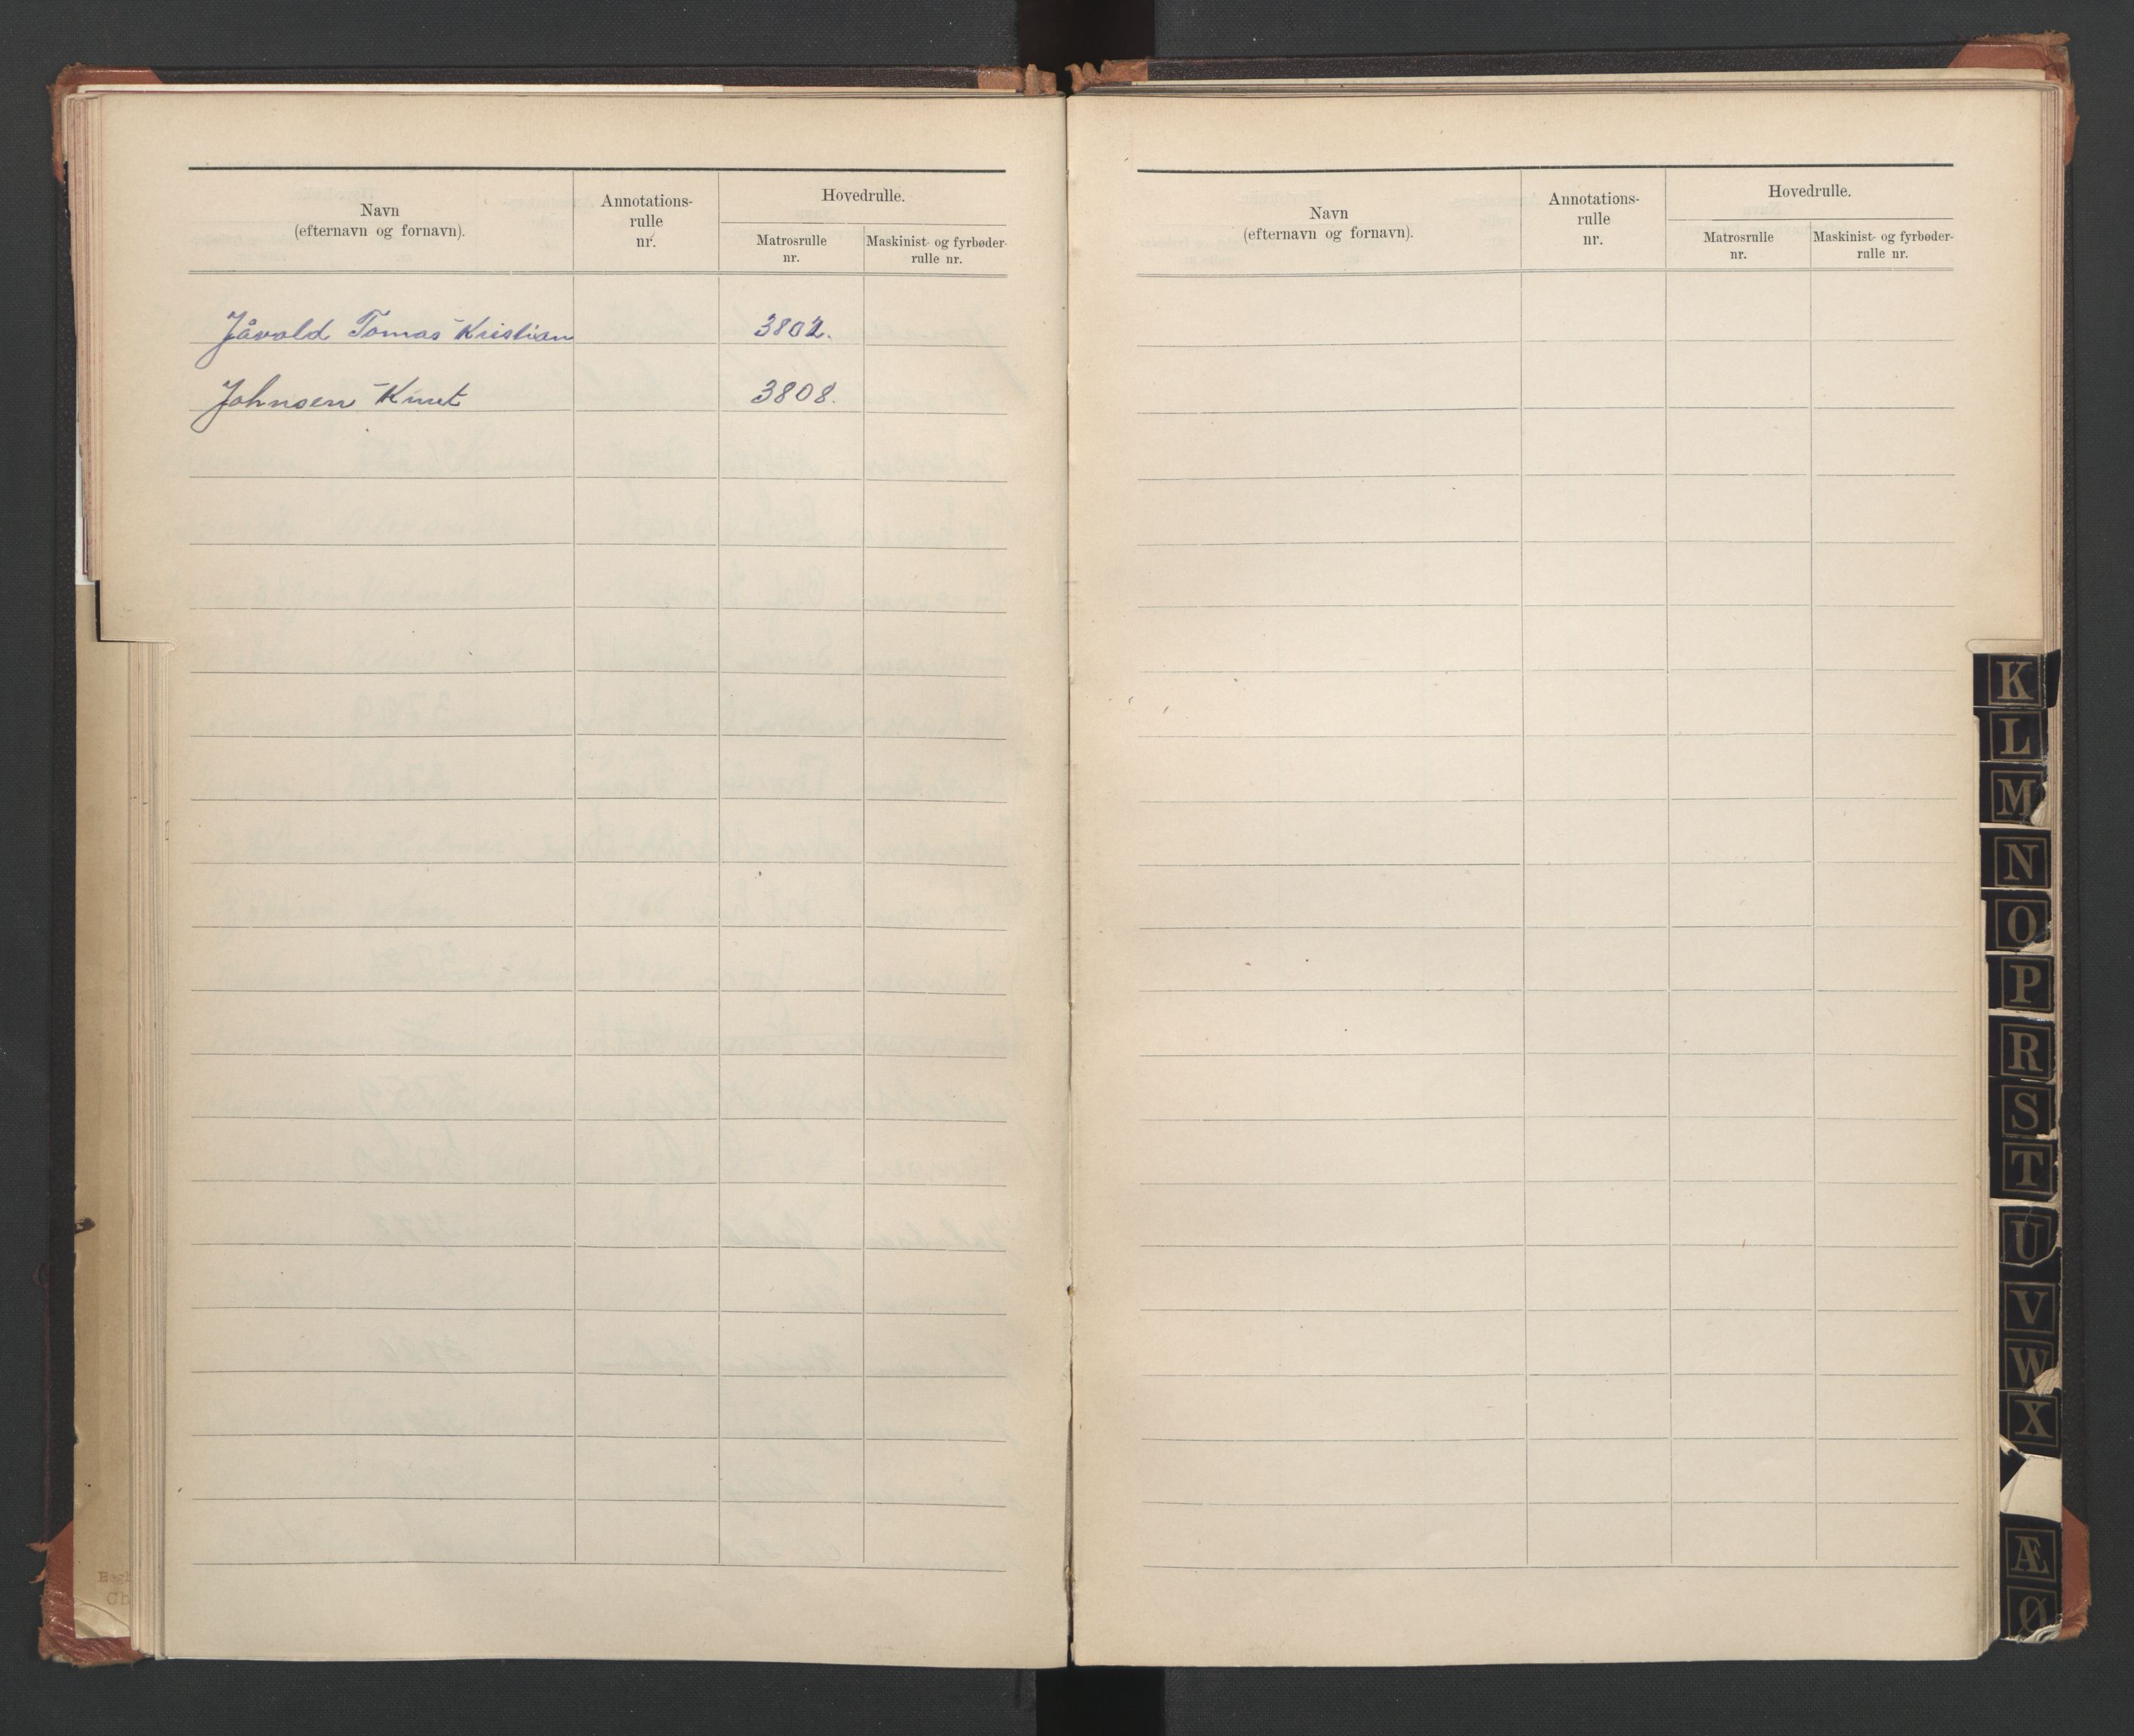 Navn
(efternavn og fornavn).
Annotations-
rulle
nr.
Hovedrulle.
Matrosrulle
nr.
Maskinist- og fyrbøder-
rulle nr.
Jåvold Tomas Kristian 3802.
Johnsen Knut 3808.
Navn
(efternavn og fornavn).
Annotations-
rulle
nr.
Hovedrulle.
Matrosrulle
nr.
Maskinist- og fyrbøder-
rulle nr.
K
L
M
N
O
P
R
S
T
U
V
W
X
Æ
Ø